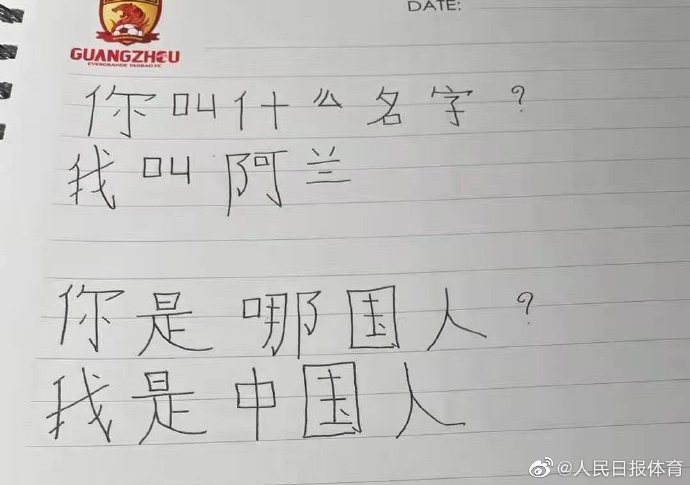 DATE:
GUANGZHOU
EVERGRANDE TAOBAO FC
你叫什么名字？
我叫阿兰
你是哪国人？
我是中国人
@人民日报体育